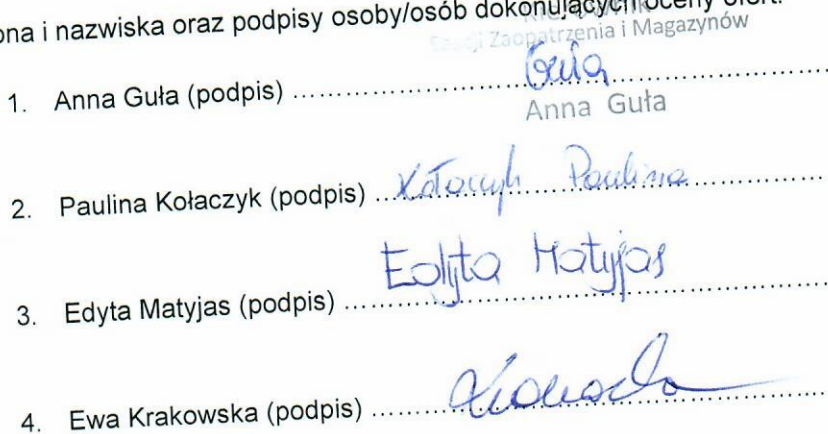 ona i nazwiska oraz podpisy osoby/osób dokonujących oceny ofert.
Zaopatrzenia i Magazynów
1. Anna Guła (podpis) ........................ Guła
Anna Guła
2. Paulina Kołaczyk (podpis) ... Kołaczyk Paulina ...............
3. Edyta Matyjas (podpis) ........ Edyta Matyjas ...............
4. Ewa Krakowska (podpis) ........................